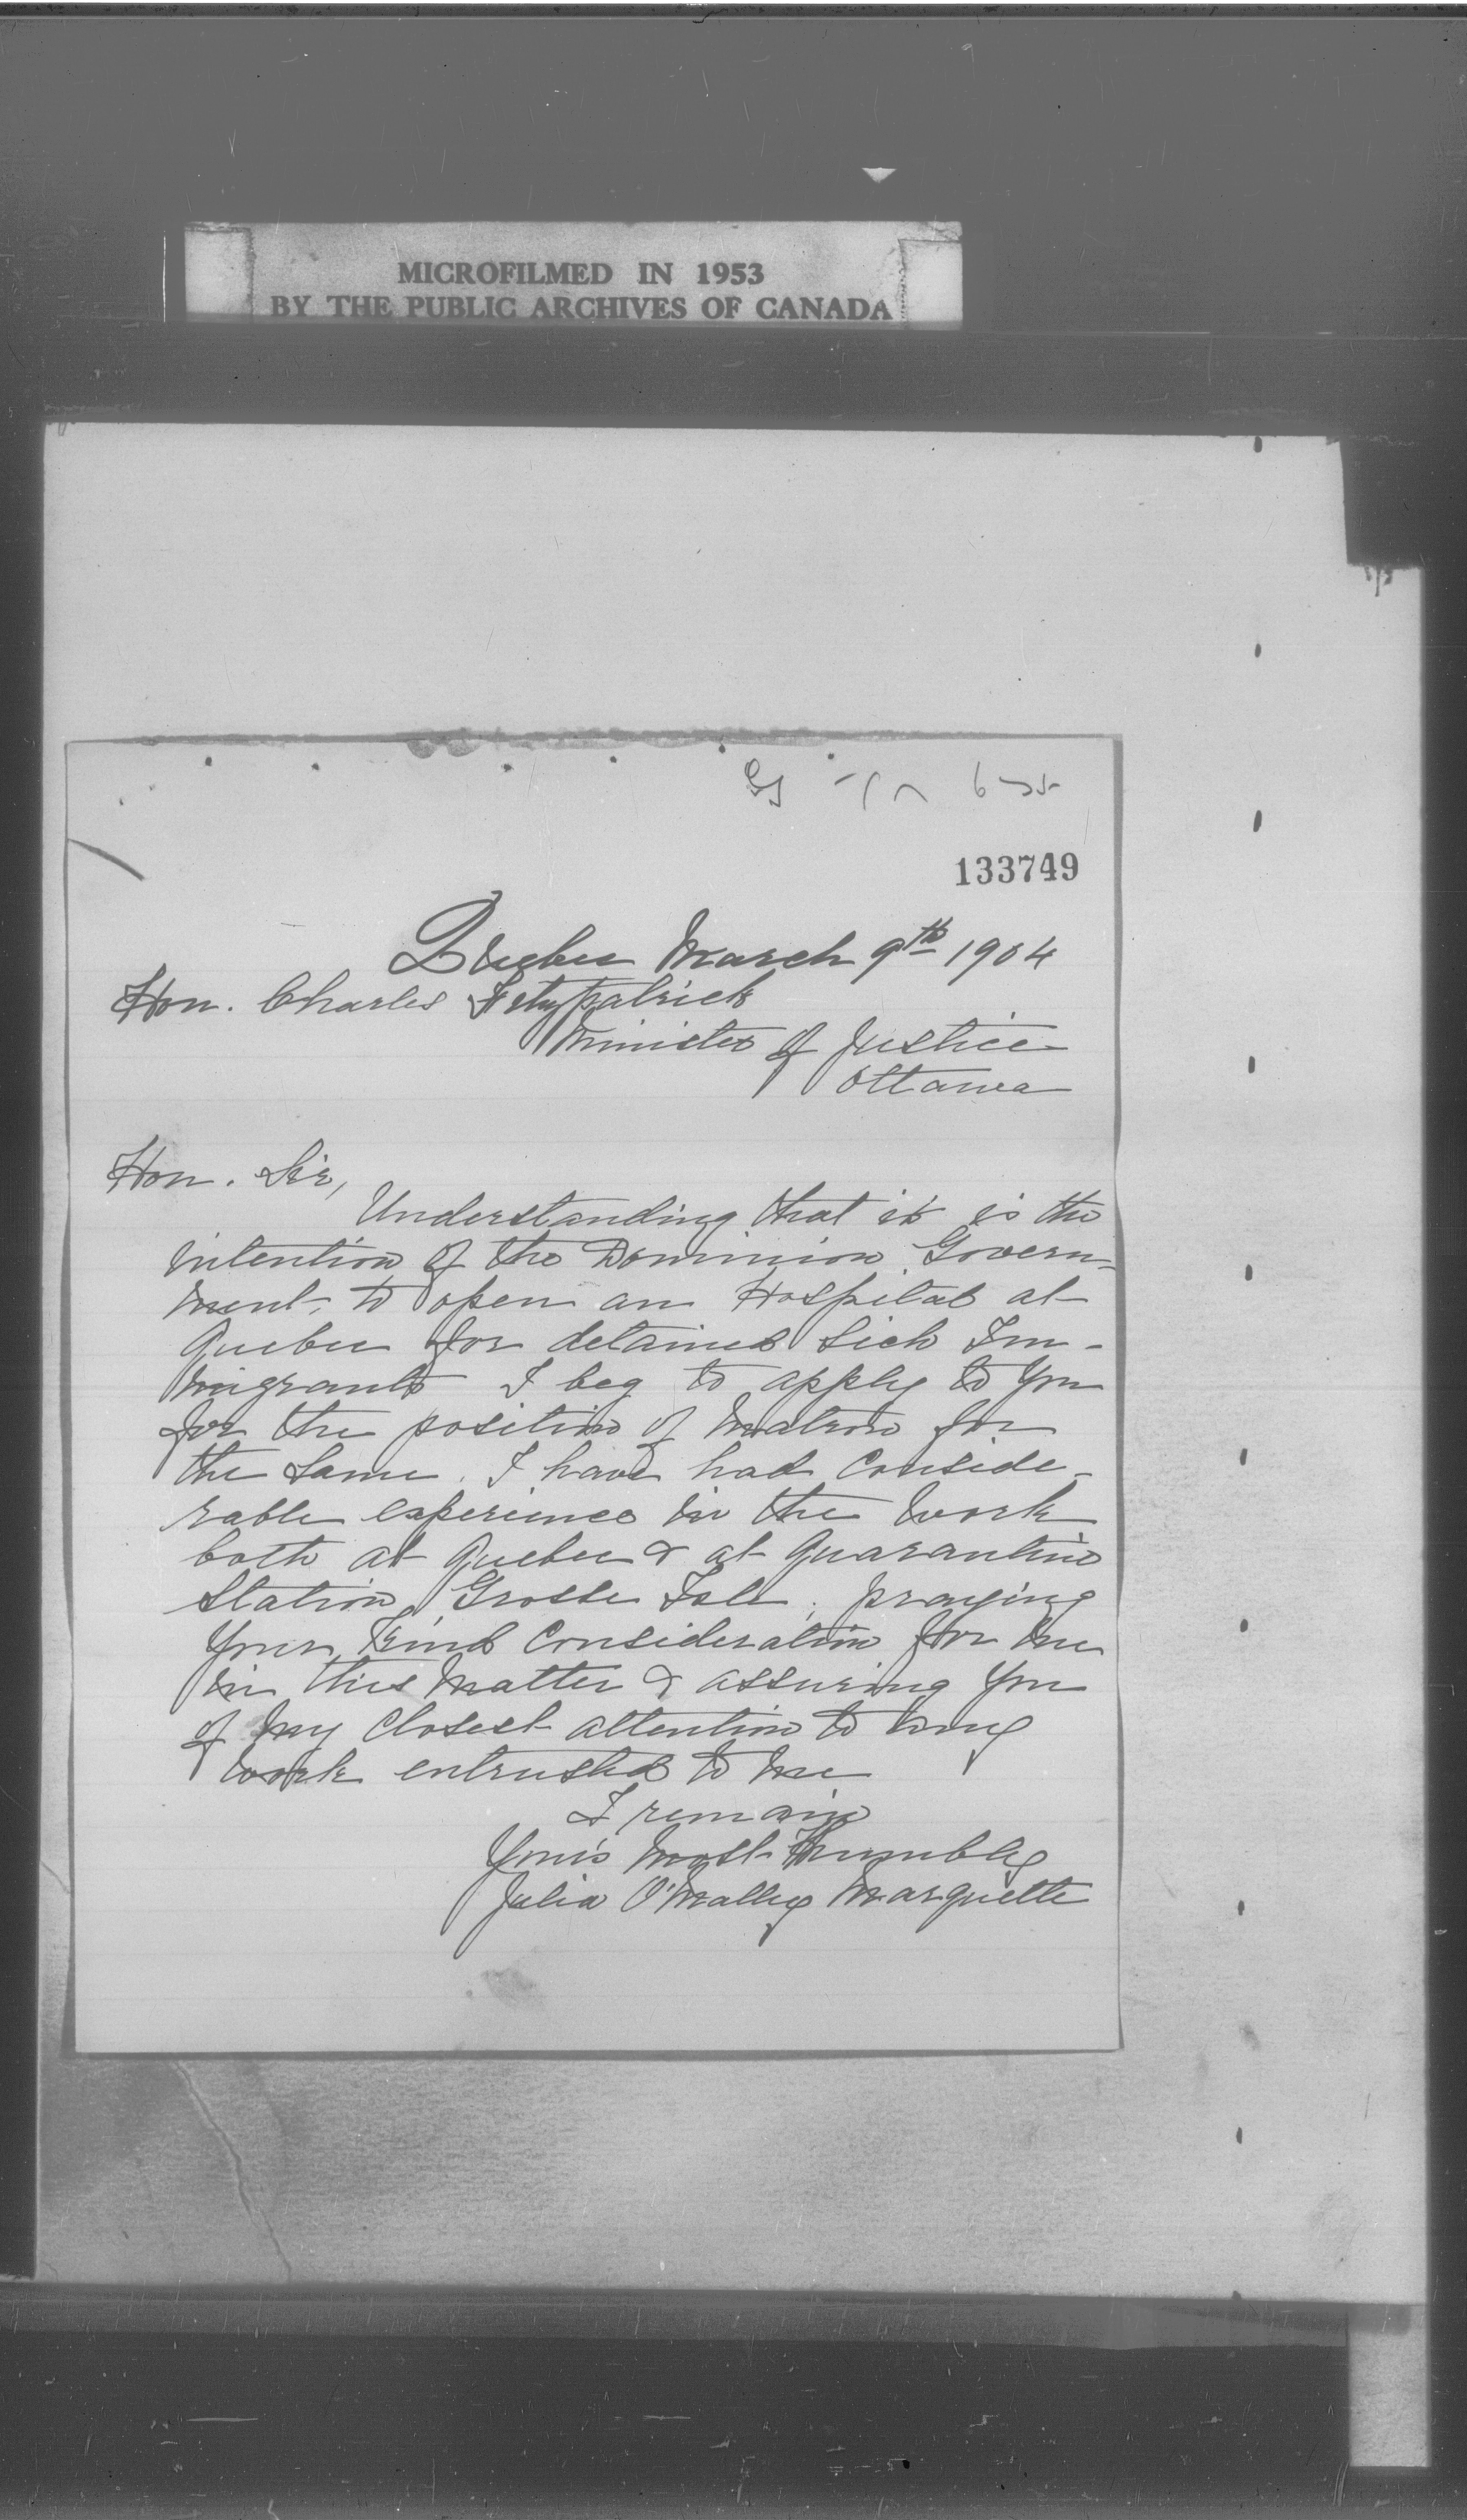 MICROFILMED IN 1953
BY THE PUBLIC ARCHIVES OF CANADA
133749
Quebec March 9th 1904
Hon. Charles Fitzpatrick
Minister of Justice
Ottawa
Hon. Sir,
Understanding that it is the
intention of the Dominion Govern-
ment, to open an Hospital at
Quebec for detained Sick Im-
migrants I beg to apply to You
for the position of Matron for
the Same. I have had Conside-
rable experience in the Work
both at Quebec & at Quarantine
Station Grosse Isle, praying
Your Kind Consideration for me
in this Matter & assuring You
of My Closest attention to any
Work entrusted to me
I remain
Your's Most Humbly
Julia O'Malley Marquette